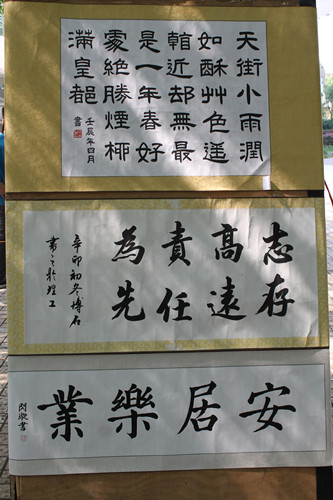 天街小雨潤
如酥艸色遥
看近却無最
是一年春好
處絕勝煙桺
滿皇都
壬辰年四月
書
志存
高遠
責任
為先
辛卯初冬博石
書之於理工
安居樂業